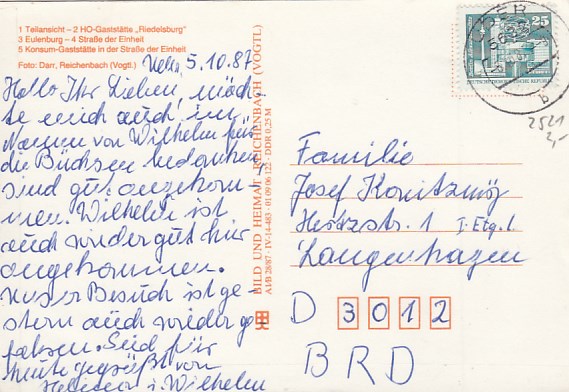 1 Teilansicht – 2 HO-Gaststätte „Riedelsburg"
3 Eulenburg – 4 Straße der Einheit
5 Konsum-Gaststätte in der Straße der Einheit
Foto: Darr, Reichenbach (Vogtl.)
5.10.87
Hallo Ihr Lieben, möch-
te mich auch im
Namen von Wilhelm für
die Büchsen bedanken,
sind gut angekom-
men. Wilhelm ist
auch wieder gut hier
angekommen.
Unser Besuch ist ge-
stern auch wieder ge-
fahren. Seid für
heute gegrüßt von
i. Wilhelm
BILD UND HEIMAT REICHENBACH (VOGTL)
A1/B 28/87 · IV-14-483 · 01 09 06 122 · DDR 0,25 M
25
2521
2,-
Familie
Josef
Hertzstr. 1 I. Etg. l.
Langenhagen
D 3012
BRD